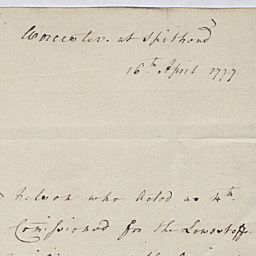 Worcester. at Spithead
16th April 1777
Nelson who Acted as 4th
Comissioned for the Lowestoffe